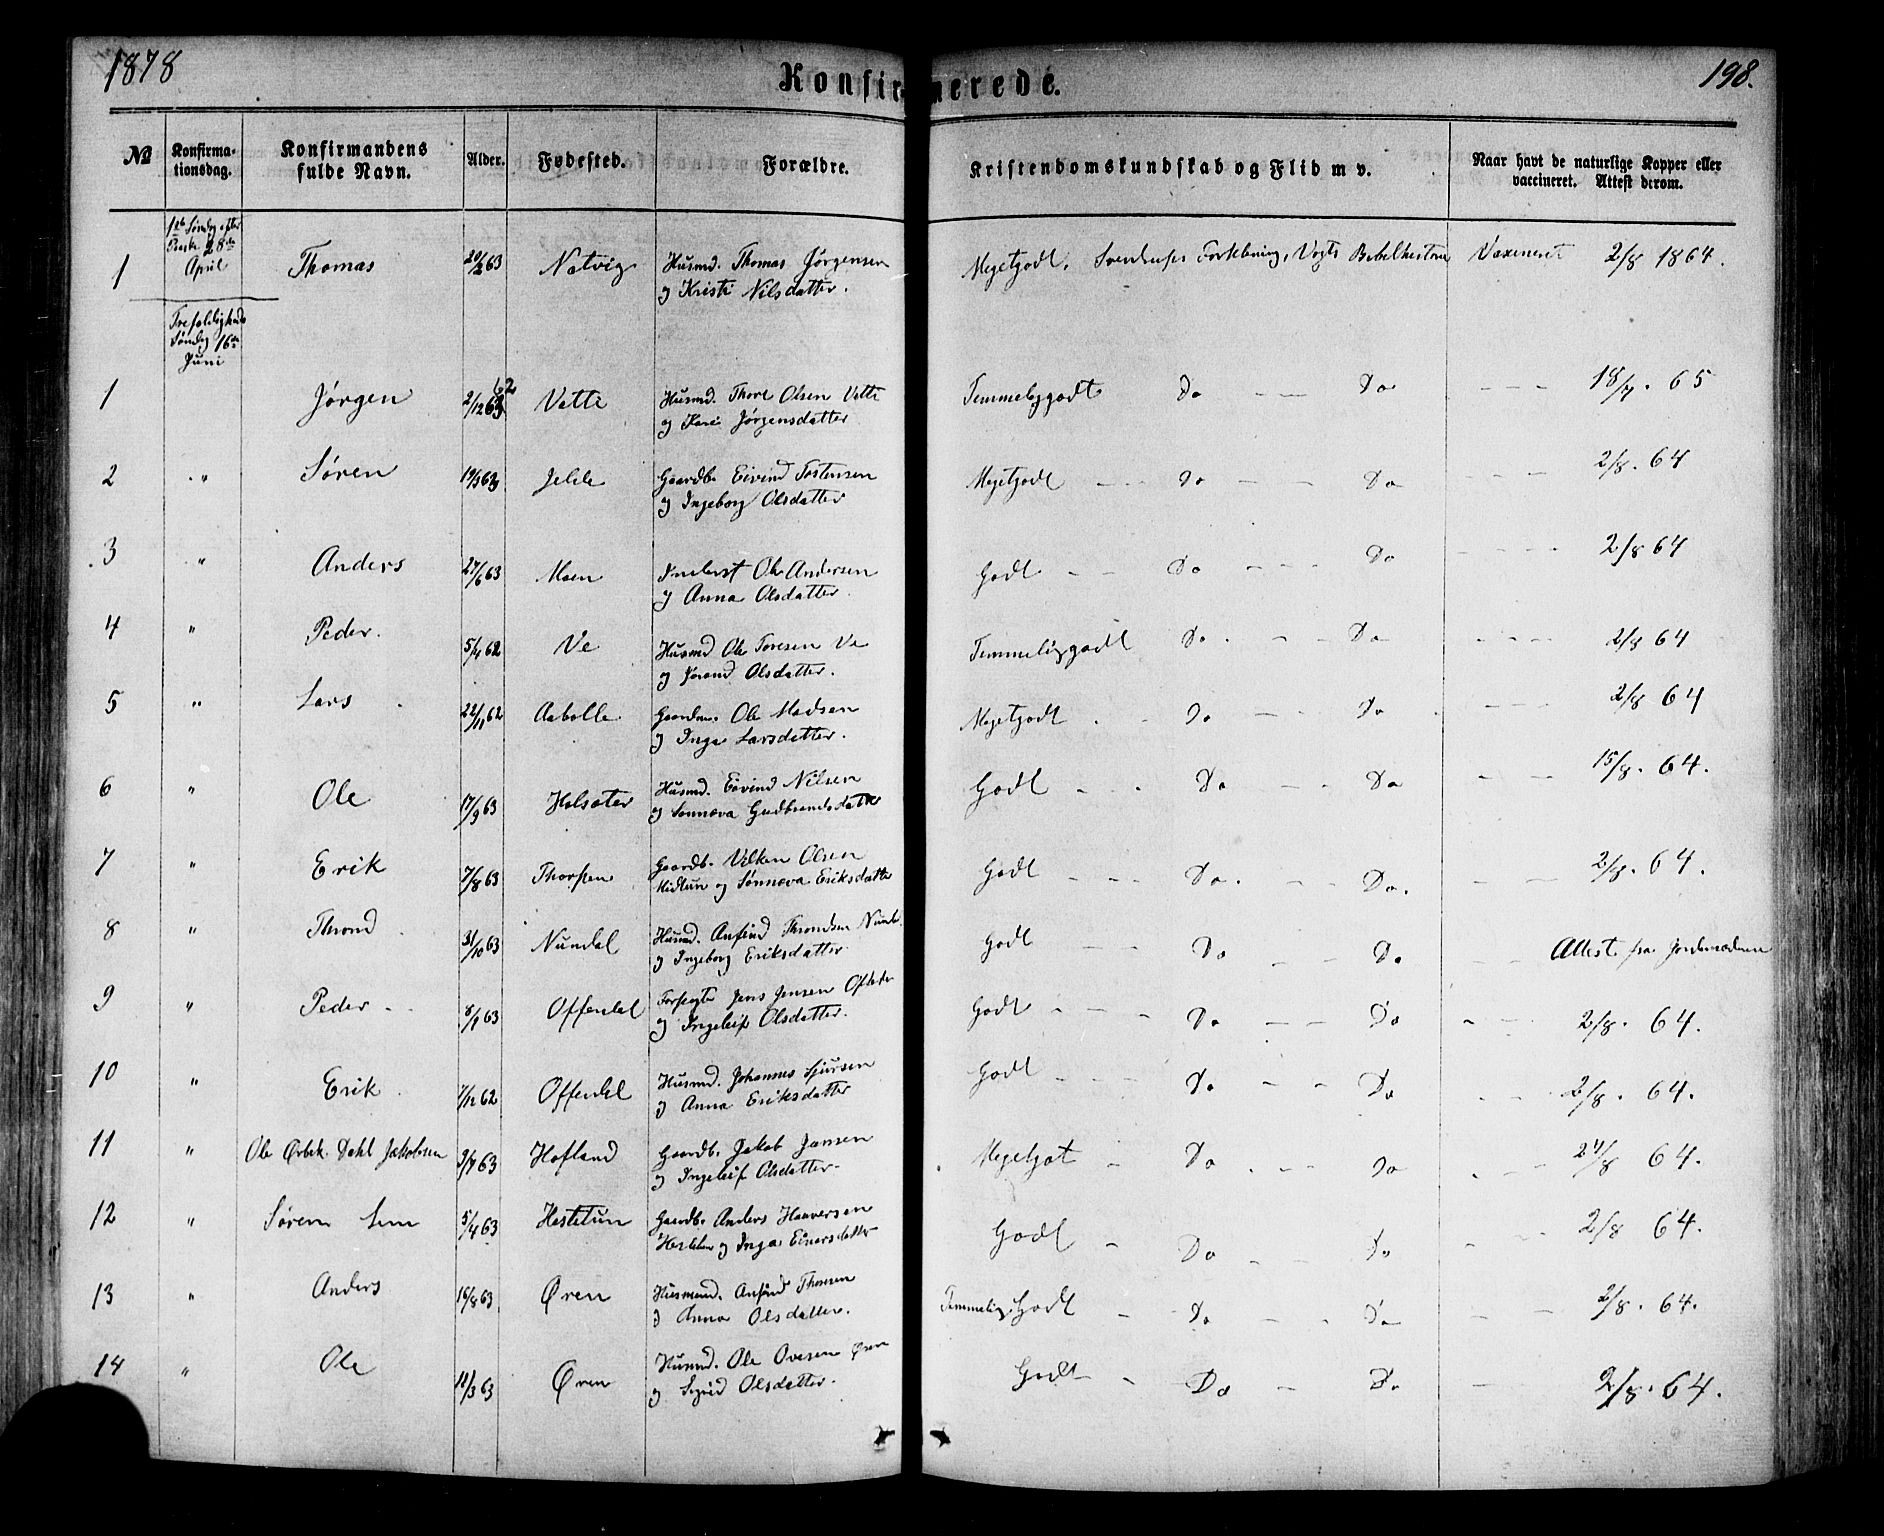 1878
Konfirmerede.
198.
No
Konfirma-
tionsdag.
Konfirmandens
fulde Navn.
Alder.
Fødested.
Forældre.
Kristendomskundskab og Flid m v.
Naar havt de naturlige Kopper eller
vaccineret. Attest derom.
1 1ste Søndag efter Paaske 28de April Thomas 20/2 63 Natvig Husmd. Thomas Jørgensen Megetgodt. Sverdrups Forklaring, Vogts Bibelhistorie Vaxineret 2/8 1864.
og Kristi Nilsdatter.
Trefoldigheds
Søndag 16de
Juni
1 Jørgen 2/12 62 Vetti Husmd. Thore Olsen Vetti Temmeliggodt Do - - Do - - - 18/7. 65
og Kari Jørgensdatter
2 " Søren 19/3 63 Jelde Gaardb. Eivind Tostensen Megetgodt - - - Do - - Do - - 2/8. 64
og Ingeborg Olsdatter
3 " Anders 27/6 63 Moen Inderst Ole Andersen Godt - - Do - - - Do - - - - 2/8 64
og Anna Olsdatter.
4 " Peder. 5/4 62 Ve Husmd Ole Toresen Ve Temmeliggodt Do. - - Do - - - - 2/8 64
og Jorand Olsdatter.
5 " Lars 22/11 62 Aabolle Gaardm. Ole Madsen Megetgodt . - Do - - Do . - - - 2/8 64
og Inga Larsdatter.
6 " Ole 17/9 63 Holsæter Husmd. Eivind Nilsen Godt - - Do - - Do - - 15/8. 64.
og Sønneva Gudbrandsdatter
7 " Erik 7/8 63 Thorpen Gaardb. Vilken Olsen Godt - - - Do. - - Do. - - 2/8. 64.
Midtun og Sønneva Eriksdatter
8 " Thrond 31/10 63 Nundal Husmd. Anfind Throndsen Godt Do - - Do - - Attest fra Jordemoderen
og Ingeborg Eriksdatter
9 " Peder 8/1 63 Offerdal Jens Jensen Godt - - - - Do - - Do - - - 2/8. 64.
og Ingeleif Olsdatter.
10 " Erik 7/12 62 Offerdal Husmd. Johannes Sjursen Godt - - - Do - - Do - - 2/8. 64.
og Anna Eriksdatter
11 " Ole Ørbek Dahl Jakobsen 9/7 63 Hofland Gaardb. Jakob Jansen Megetgot - Do - - - Do - - - 24/8 64.
og Ingeleif Olsdatter
12 " Søren Sem 5/4 63 Hestetun Gaardb. Anders Haaversen Godt - Do - - Do - - 2/8 64.
og Inga Einersdatter
13 " Anders 16/8 63 Øren Husmand. Anfind Thoresen Temmelig Godt - Do - - Do - - 2/8. 64.
og Anna Olsdatter.
14 " Ole 11/3 63 Øren Husmd. Ole Ovesen Øren Godt - Do - Do - - 2/8. 64.
og Sigrid Olsdatter.